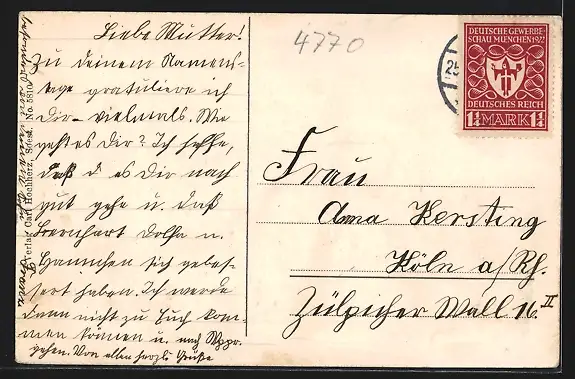 Liebe Mutter!
Zu deinem Namens-
tage gratuliere ich
Dir vielmals. Wie
geht es Dir? Ich hoffe,
daß es Dir nach
gut gehe u. daß
u.
Hannchen sich gebes-
sert haben. Ich werde
dann nicht zu Euch kom-
men können u. nach
gehen. Von allen herzl. Grüße
Verlag Carl Hochherz, Soest. No 5810
4770
25
DEUTSCHE GEWERBE-
SCHAU MÜNCHEN 1922
DEUTSCHES REICH
1¼ MARK 1¼
Frau
Anna Kersting
Köln a/Rh.
Zülpicher Wall 16 II